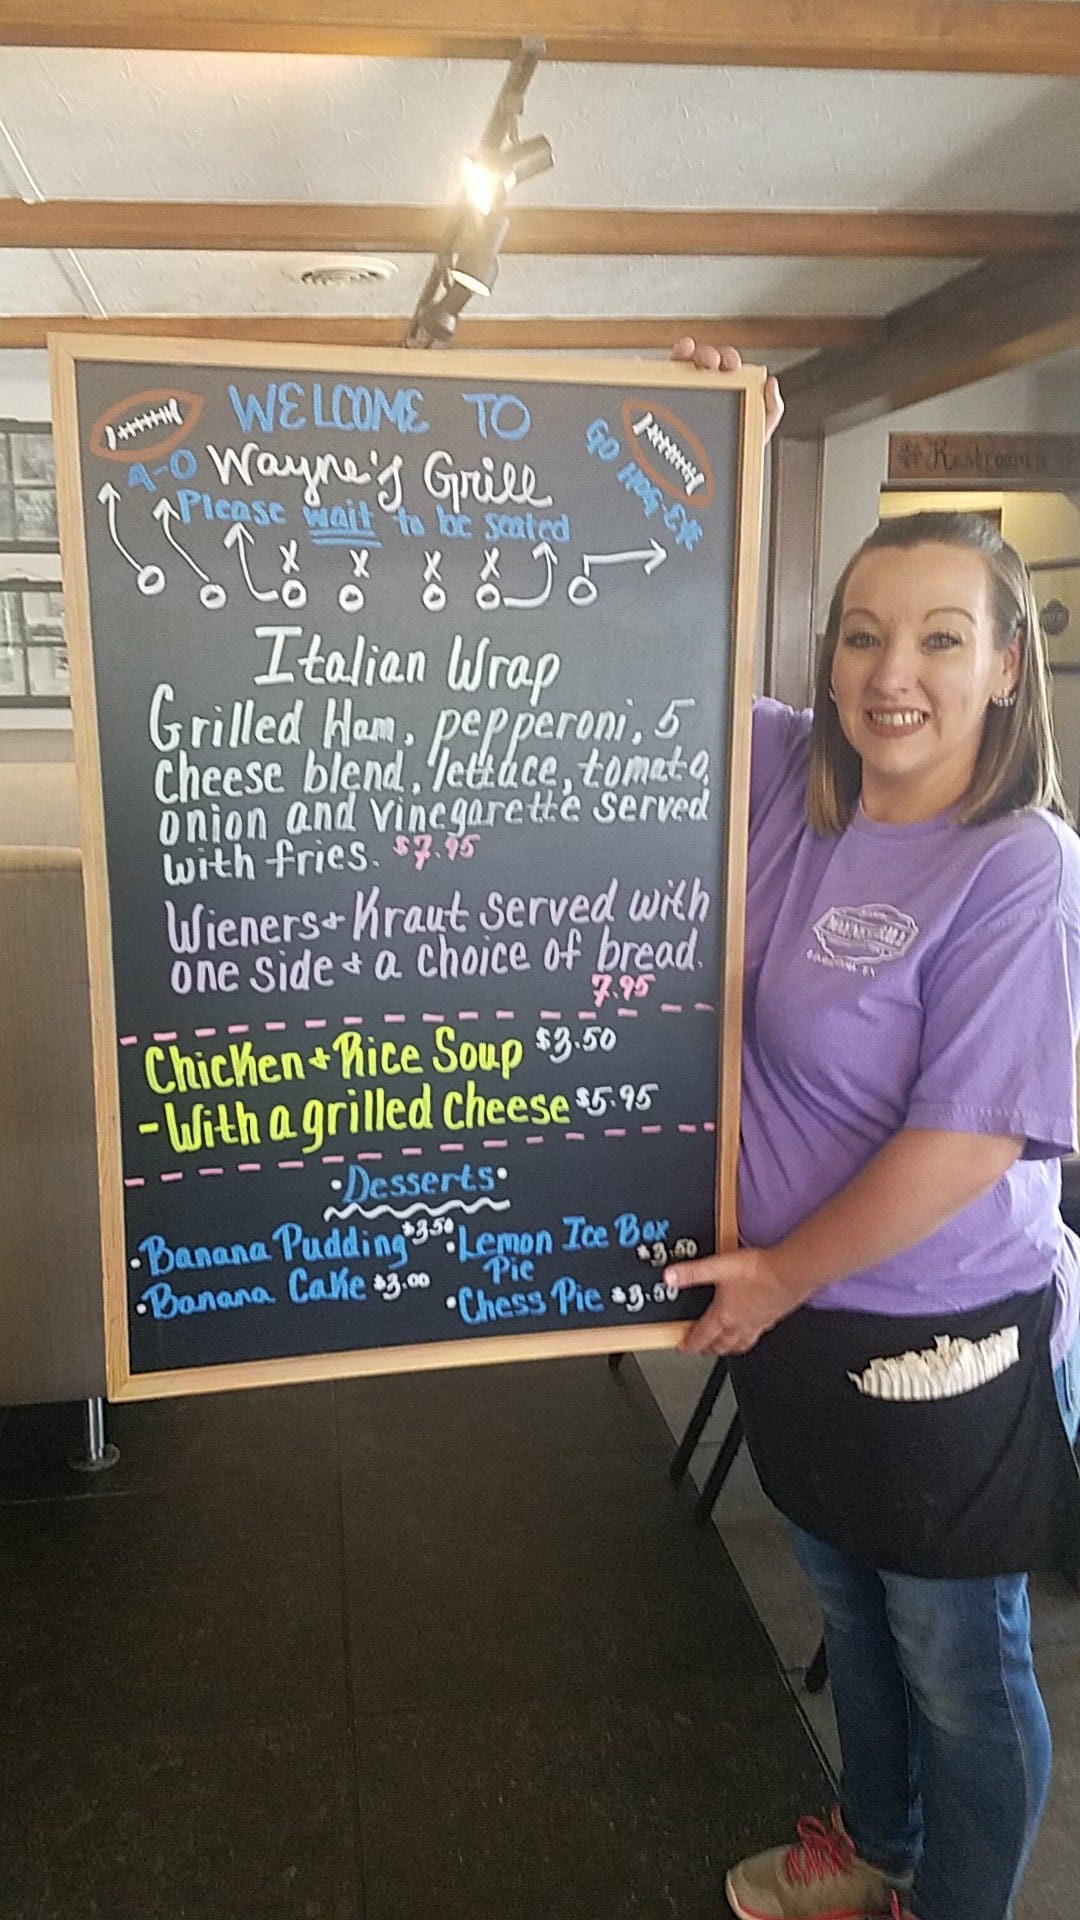 WELCOME TO
4-0 Wayne's Grill
GO HOG-EYE
Please wait to be seated
X X X X
O O O O O O O
Italian Wrap
Grilled Ham, pepperoni, 5
cheese blend, lettuce, tomato,
onion and vinegarette served
with fries. $7.95
Wieners + Kraut served with
one side + a choice of bread.
7.95
Chicken + Rice Soup $3.50
- With a grilled cheese $5.95
• Desserts •
• Banana Pudding $3.50
• Banana Cake $3.00
• Lemon Ice Box
Pie $3.50
• Chess Pie $3.50
# Restrooms